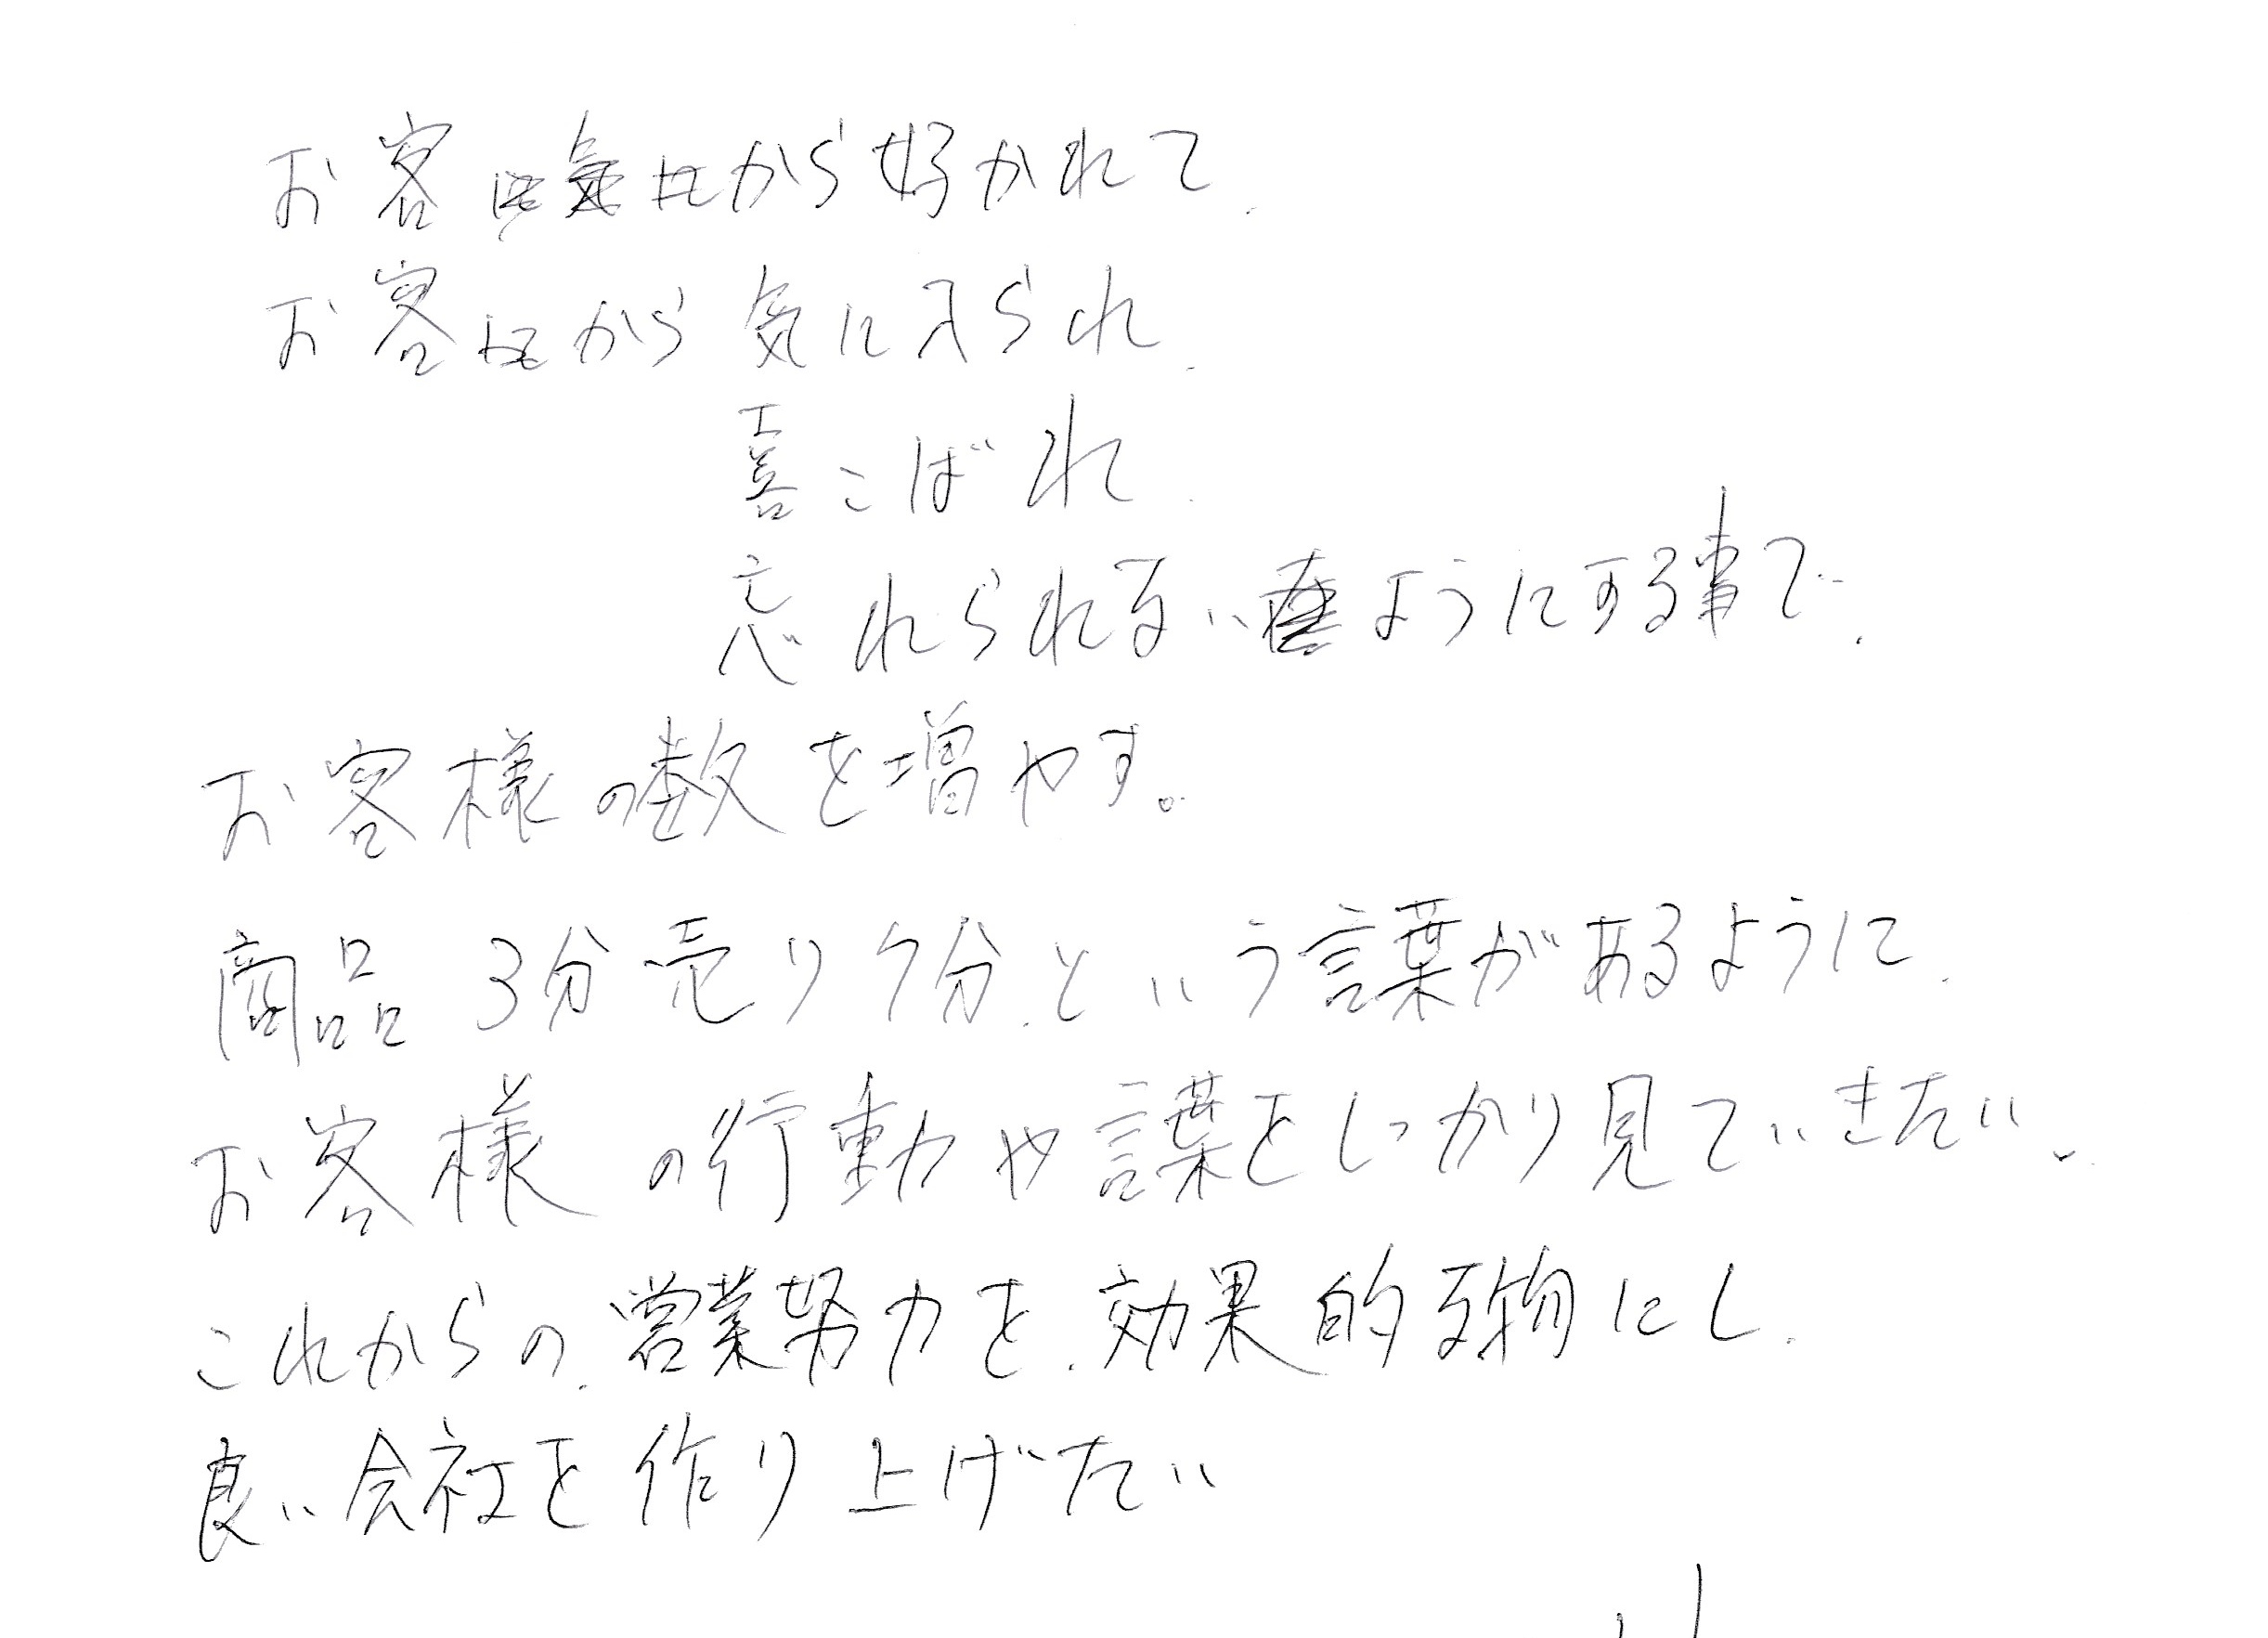 お客にから好かれて、
お客にから気に入られ、
喜こばれ、
忘れられないようにする事で、
お客様の数を増やす。
商品3分売り7分、という言葉があるように、
お客様の行動や言葉をしっかり見ていきたい、
これからの、営業努力を、効果的な物にし、
良い会社を作り上げたい